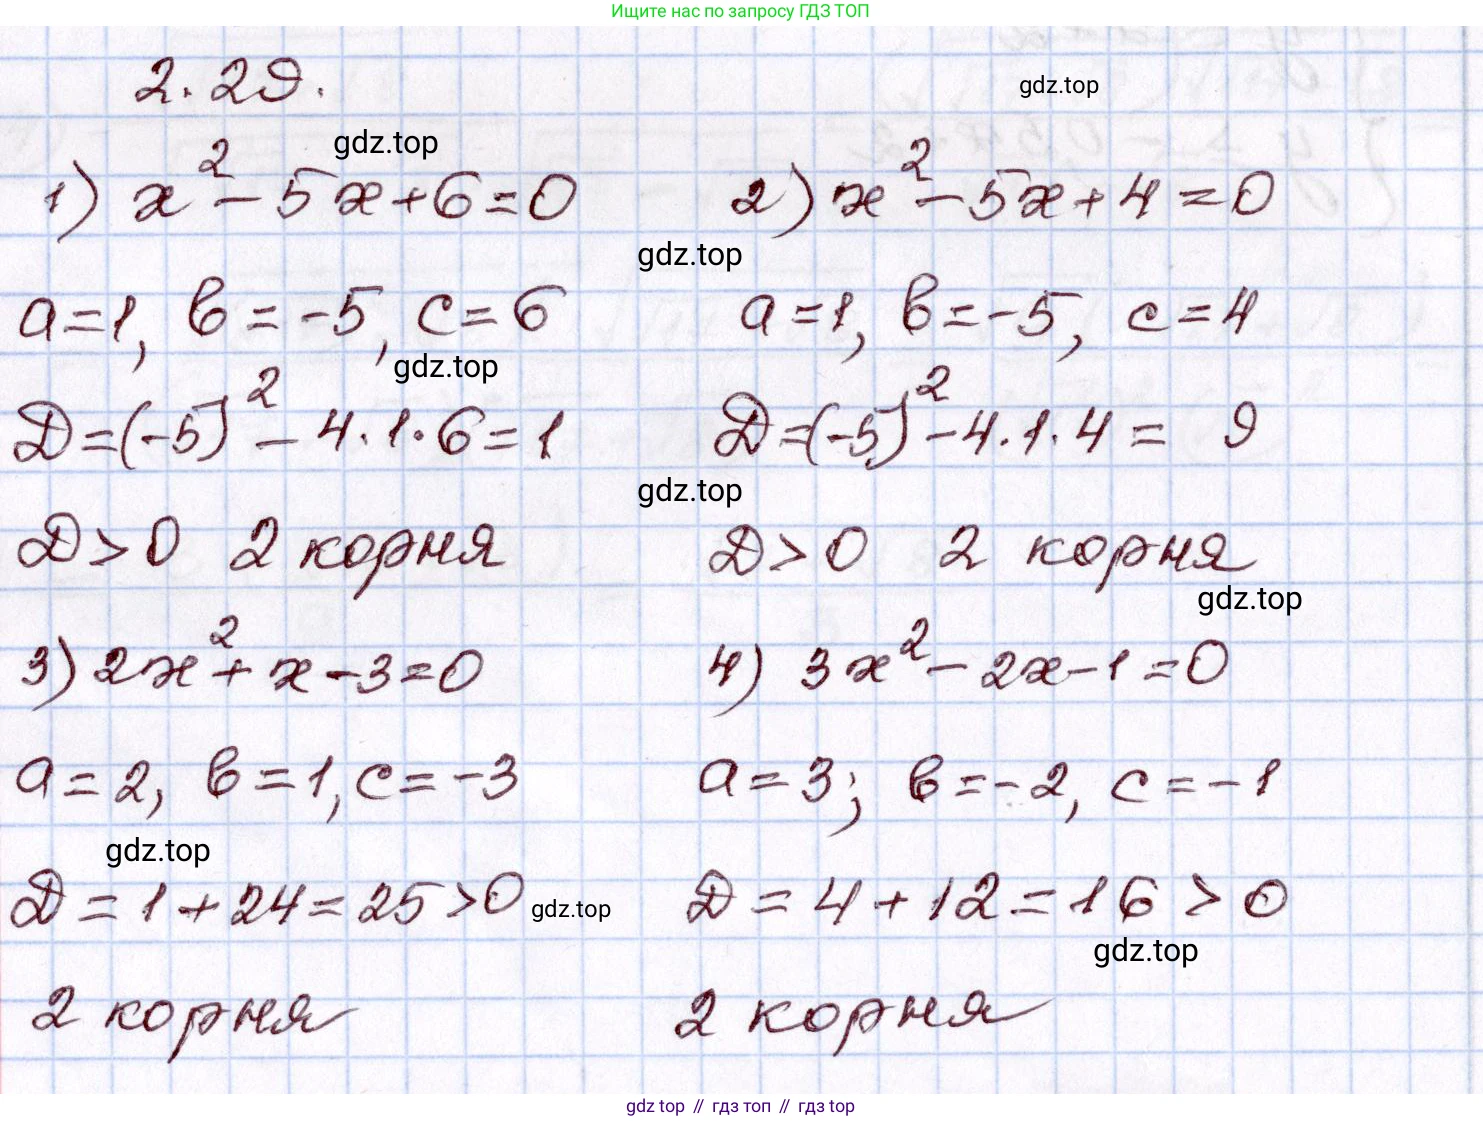 Ищите нас по запросу ГДЗ ТОП
2.29.
gdz.top
gdz.top
1) x² - 5x + 6 = 0
2) x² - 5x + 4 = 0
gdz.top
a = 1, в = -5, c = 6
a = 1, в = -5, c = 4
gdz.top
D = (-5)² - 4·1·6 = 1
D = (-5)² - 4·1·4 = 9
gdz.top
D > 0 2 корня
D > 0 2 корня
gdz.top
3) 2x² + x - 3 = 0
4) 3x² - 2x - 1 = 0
a = 2, в = 1, c = -3
a = 3; в = -2, c = -1
gdz.top
D = 1 + 24 = 25 > 0
gdz.top
D = 4 + 12 = 16 > 0
gdz.top
2 корня
2 корня
gdz top // гдз топ // gdz.top